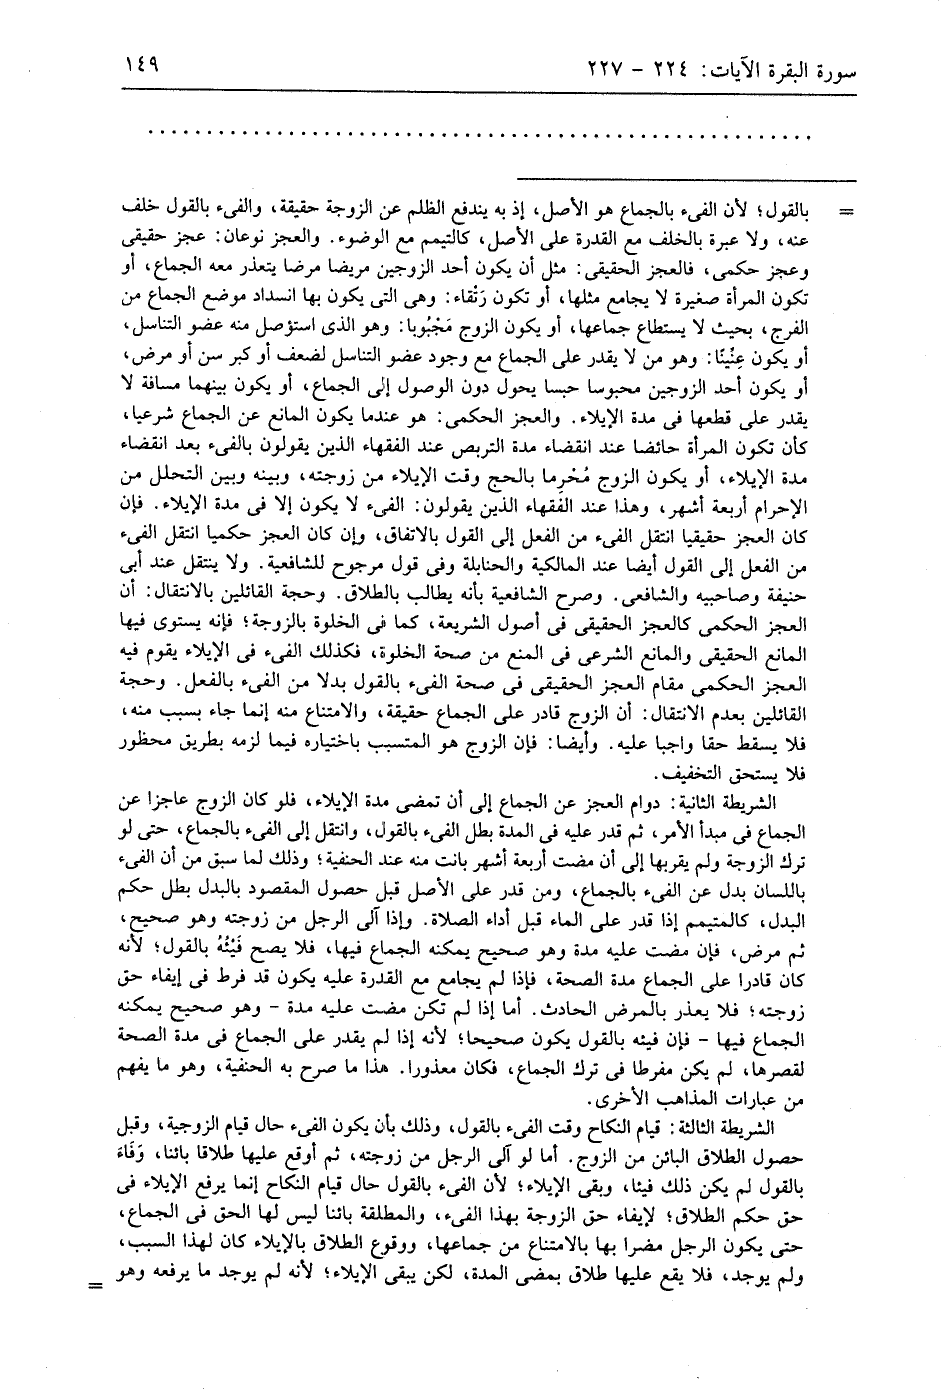 سورة البقرة الآيات: ٢٢٤ - ٢٢٧
١٤٩
. . . . . . . . . . . . . . . . . . . . . . . . . . . . . . . . . . . . . . . . . . . . . . . . . . . . . . . . .
= بالقول؛ لأن الفىء بالجماع هو الأصل، إذ به يندفع الظلم عن الزوجة حقيقة، والفىء بالقول خلف
عنه، ولا عبرة بالخلف مع القدرة على الأصل، كالتيمم مع الوضوء. والعجز نوعان: عجز حقيقى
وعجز حكمى، فالعجز الحقيقى: مثل أن يكون أحد الزوجين مريضا مرضا يتعذر معه الجماع، أو
تكون المرأة صغيرة لا يجامع مثلها، أو تكون رَتْقاء: وهى التى يكون بها انسداد موضع الجماع من
الفرج، بحيث لا يستطاع جماعها، أو يكون الزوج مَجْبُوبا: وهو الذى استؤصل منه عضو التناسل،
أو يكون عِنِّينًا: وهو من لا يقدر على الجماع مع وجود عضو التناسل لضعف أو كبر سن أو مرض،
أو يكون أحد الزوجين محبوسا حبسا يحول دون الوصول إلى الجماع، أو يكون بينهما مسافة لا
يقدر على قطعها فى مدة الإيلاء. والعجز الحكمى: هو عندما يكون المانع عن الجماع شرعيا،
كأن تكون المرأة حائضا عند انقضاء مدة التربص عند الفقهاء الذين يقولون بالفىء بعد انقضاء
مدة الإيلاء، أو يكون الزوج مُحْرِما بالحج وقت الإيلاء من زوجته، وبينه وبين التحلل من
الإحرام أربعة أشهر، وهذا عند الفقهاء الذين يقولون: الفىء لا يكون إلا فى مدة الإيلاء. فإن
كان العجز حقيقيا انتقل الفىء من الفعل إلى القول بالاتفاق، وإن كان العجز حكميا انتقل الفىء
من الفعل إلى القول أيضا عند المالكية والحنابلة وفى قول مرجوح للشافعية. ولا ينتقل عند أبى
حنيفة وصاحبيه والشافعى. وصرح الشافعية بأنه يطالب بالطلاق. وحجة القائلين بالانتقال: أن
العجز الحكمى كالعجز الحقيقى فى أصول الشريعة، كما فى الخلوة بالزوجة؛ فإنه يستوى فيها
المانع الحقيقى والمانع الشرعى فى المنع من صحة الخلوة، فكذلك الفىء فى الإيلاء يقوم فيه
العجز الحكمى مقام العجز الحقيقى فى صحة الفىء بالقول بدلا من الفىء بالفعل. وحجة
القائلين بعدم الانتقال: أن الزوج قادر على الجماع حقيقة، والامتناع منه إنما جاء بسبب منه،
فلا يسقط حقا واجبا عليه. وأيضا: فإن الزوج هو المتسبب باختياره فيما لزمه بطريق محظور
فلا يستحق التخفيف.
الشريطة الثانية: دوام العجز عن الجماع إلى أن تمضى مدة الإيلاء، فلو كان الزوج عاجزا عن
الجماع فى مبدأ الأمر، ثم قدر عليه فى المدة بطل الفىء بالقول، وانتقل إلى الفىء بالجماع، حتى لو
ترك الزوجة ولم يقربها إلى أن مضت أربعة أشهر بانت منه عند الحنفية؛ وذلك لما سبق من أن الفىء
باللسان بدل عن الفىء بالجماع، ومن قدر على الأصل قبل حصول المقصود بالبدل بطل حكم
البدل، كالمتيمم إذا قدر على الماء قبل أداء الصلاة. وإذا آلى الرجل من زوجته وهو صحيح،
ثم مرض، فإن مضت عليه مدة وهو صحيح يمكنه الجماع فيها، فلا يصح فَيْئُهُ بالقول؛ لأنه
كان قادرا على الجماع مدة الصحة، فإذا لم يجامع مع القدرة عليه يكون قد فرط فى إيفاء حق
زوجته؛ فلا يعذر بالمرض الحادث. أما إذا لم تكن مضت عليه مدة - وهو صحيح يمكنه
الجماع فيها - فإن فيئه بالقول يكون صحيحا؛ لأنه إذا لم يقدر على الجماع فى مدة الصحة
لقصرها، لم يكن مفرطا فى ترك الجماع، فكان معذورا. هذا ما صرح به الحنفية، وهو ما يفهم
من عبارات المذاهب الأخرى.
الشريطة الثالثة: قيام النكاح وقت الفىء بالقول، وذلك بأن يكون الفىء حال قيام الزوجية، وقبل
حصول الطلاق البائن من الزوج. أما لو آلى الرجل من زوجته، ثم أوقع عليها طلاقا بائنا، وَفَاءَ
بالقول لم يكن ذلك فيئا، وبقى الإيلاء؛ لأن الفىء بالقول حال قيام النكاح إنما يرفع الإيلاء فى
حق حكم الطلاق؛ لإيفاء حق الزوجة بهذا الفىء، والمطلقة بائنا ليس لها الحق فى الجماع،
حتى يكون الرجل مضرا بها بالامتناع من جماعها، ووقوع الطلاق بالإيلاء كان لهذا السبب،
ولم يوجد، فلا يقع عليها طلاق بمضى المدة، لكن يبقى الإيلاء؛ لأنه لم يوجد ما يرفعه وهو =